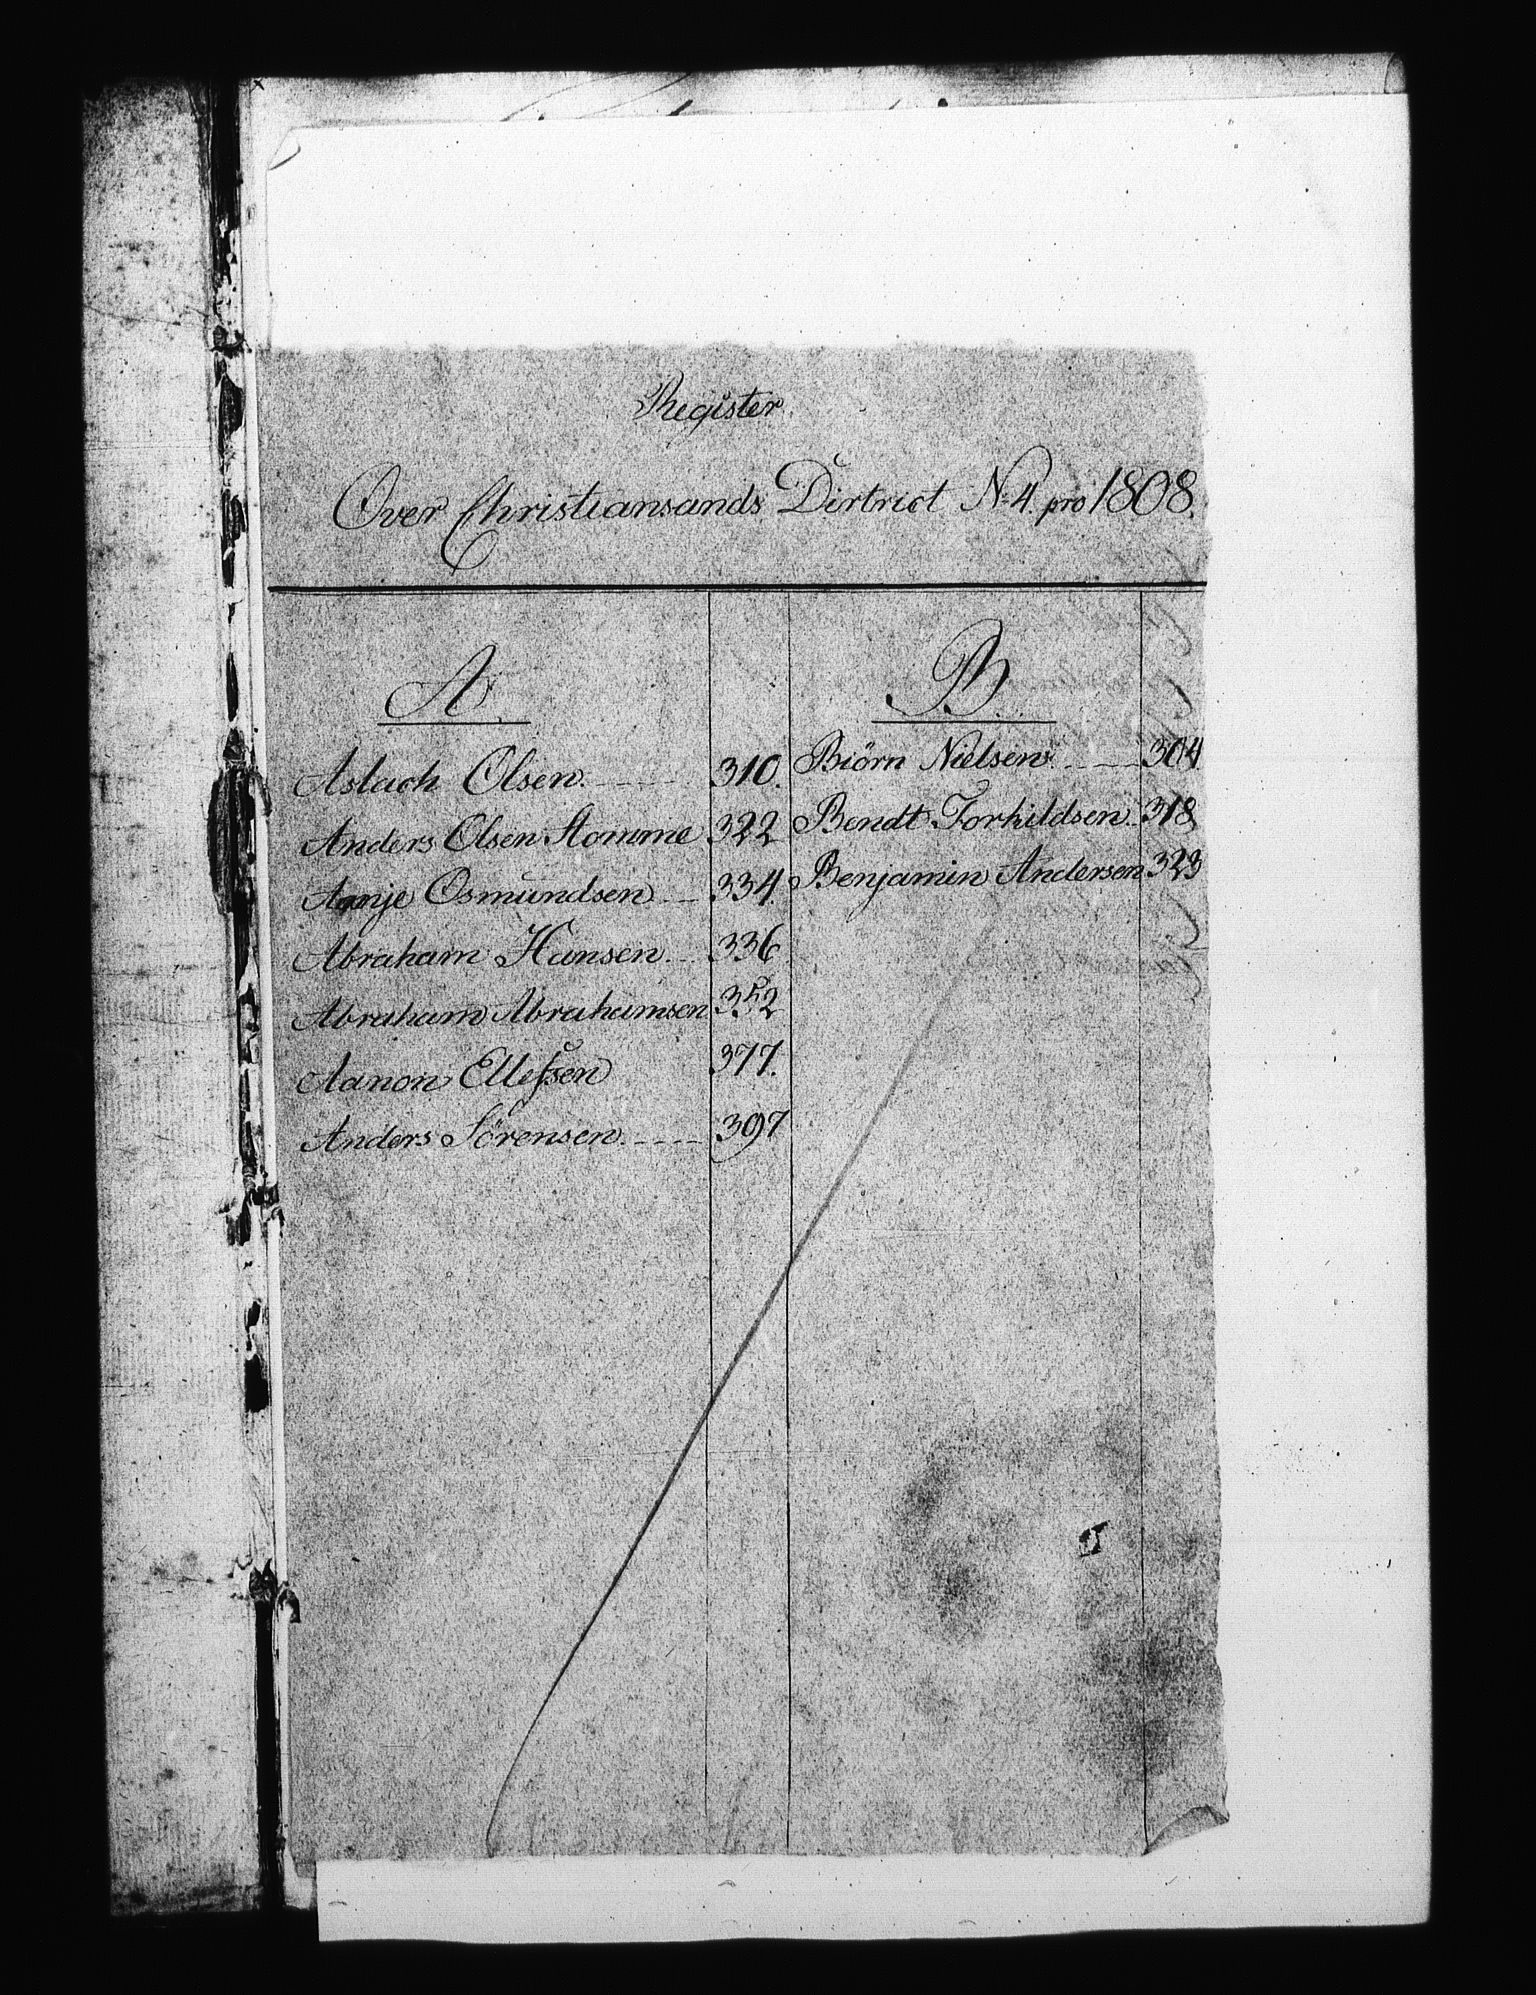 Register
Over Christiansands Dirtrict No 4. pro 1808.
A.
Aslach Olsen. 310.
Anders Olsen Homme 322
Aanje Osmundsen 334.
Abraham Hansen 336
Abraham Abrahamsen 352
Aanon Ellefsen 377.
Anders Sörensen. 397
B.
Biörn Nielsen 304
Bendt Torkildsen 318
Benjamin Andersen 323